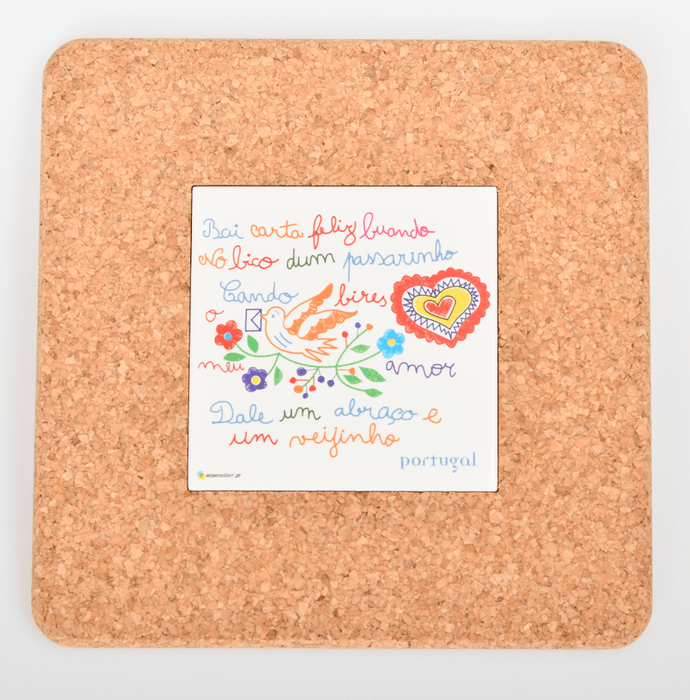 Bai carta feliz buando
No bico dum passarinho
Cando bires
o
meu amor
Dale um abraço e
um veijinho
portugal